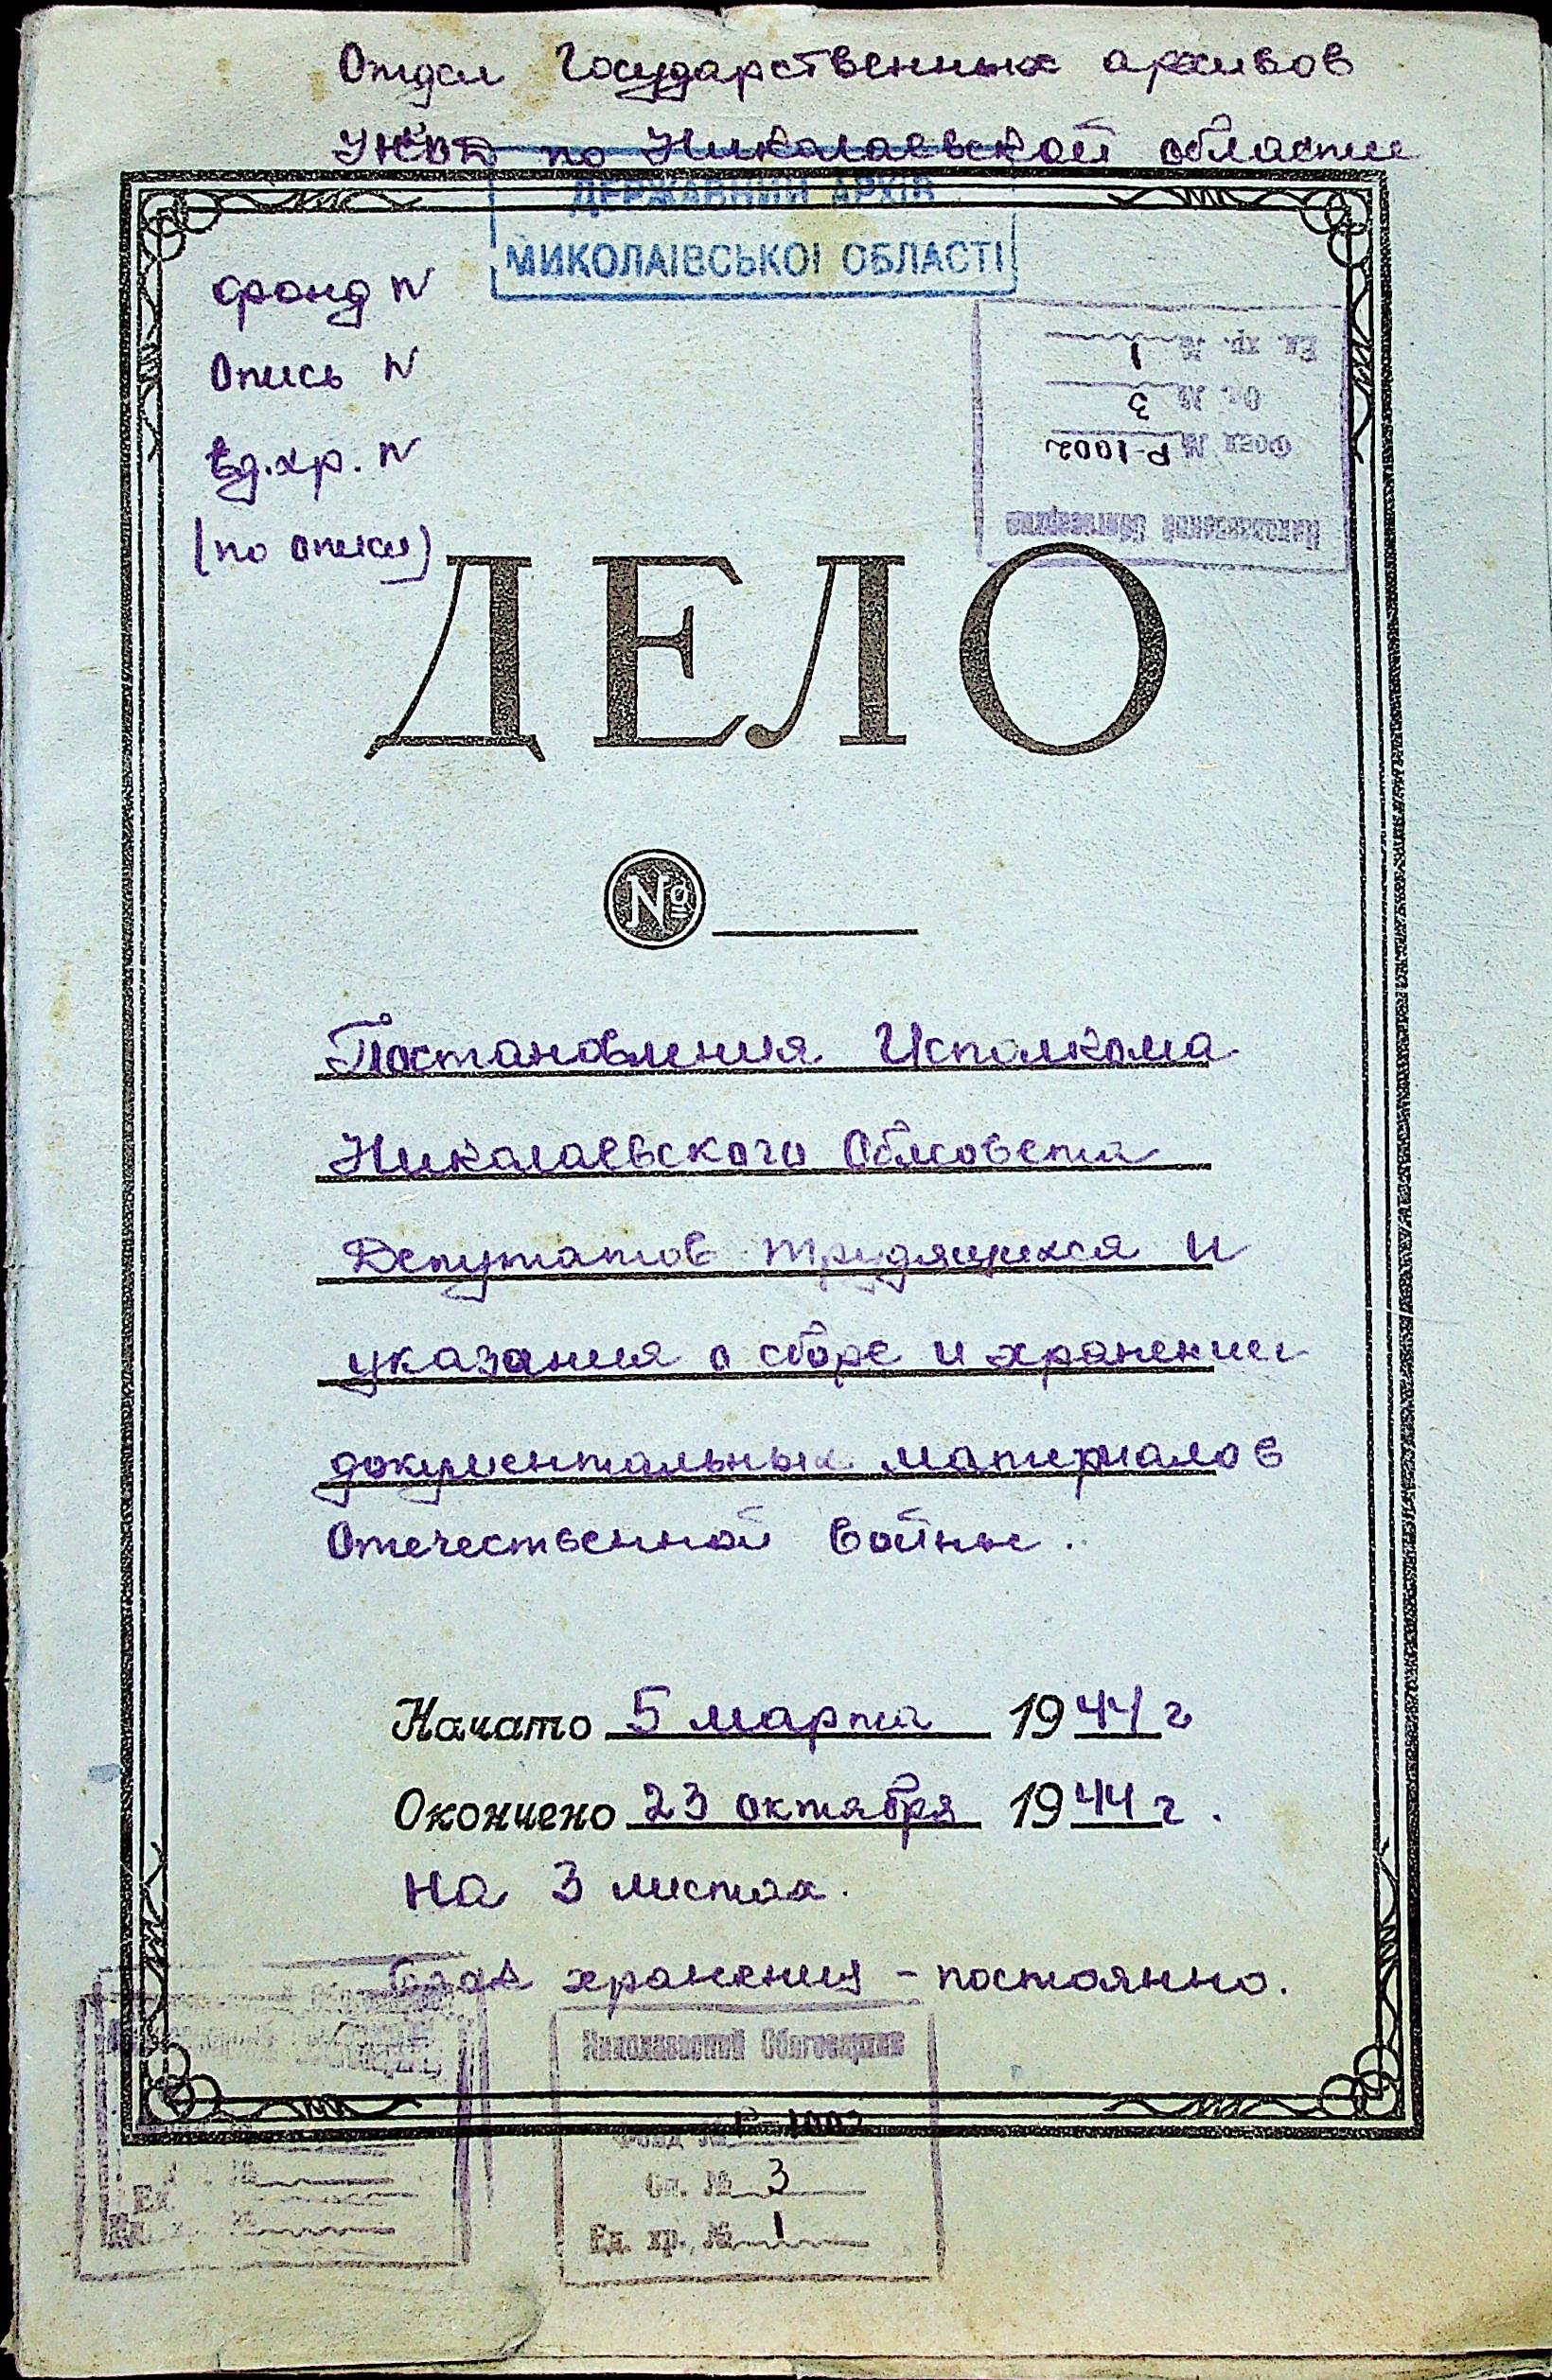 Отдел Государственных архивов
УНКВД по Николаевской области
ДЕРЖАВНИЙ АРХІВ
МИКОЛАІВСЬКОІ ОБЛАСТІ
фонд N
Опись N
Ед.хр. N
(по описи)
Николаевский Облгосархив
Фонд № Р-1002
Оп. № 3
Ед. хр. № 1
ДЕЛО
№
Постановления Исполкома
Николаевского Облсовета
Депутатов трудящихся и
указания о сборе и хранении
документальных материалов
Отечественной войны.
Начато 5 марта 1944 г
Окончено 23 октября 1944 г.
на 3 листах.
Срок хранения - постоянно.
Николаевский Облгосархив
Фонд № Р-1002
Оп. № 3
Ед. хр. № 1